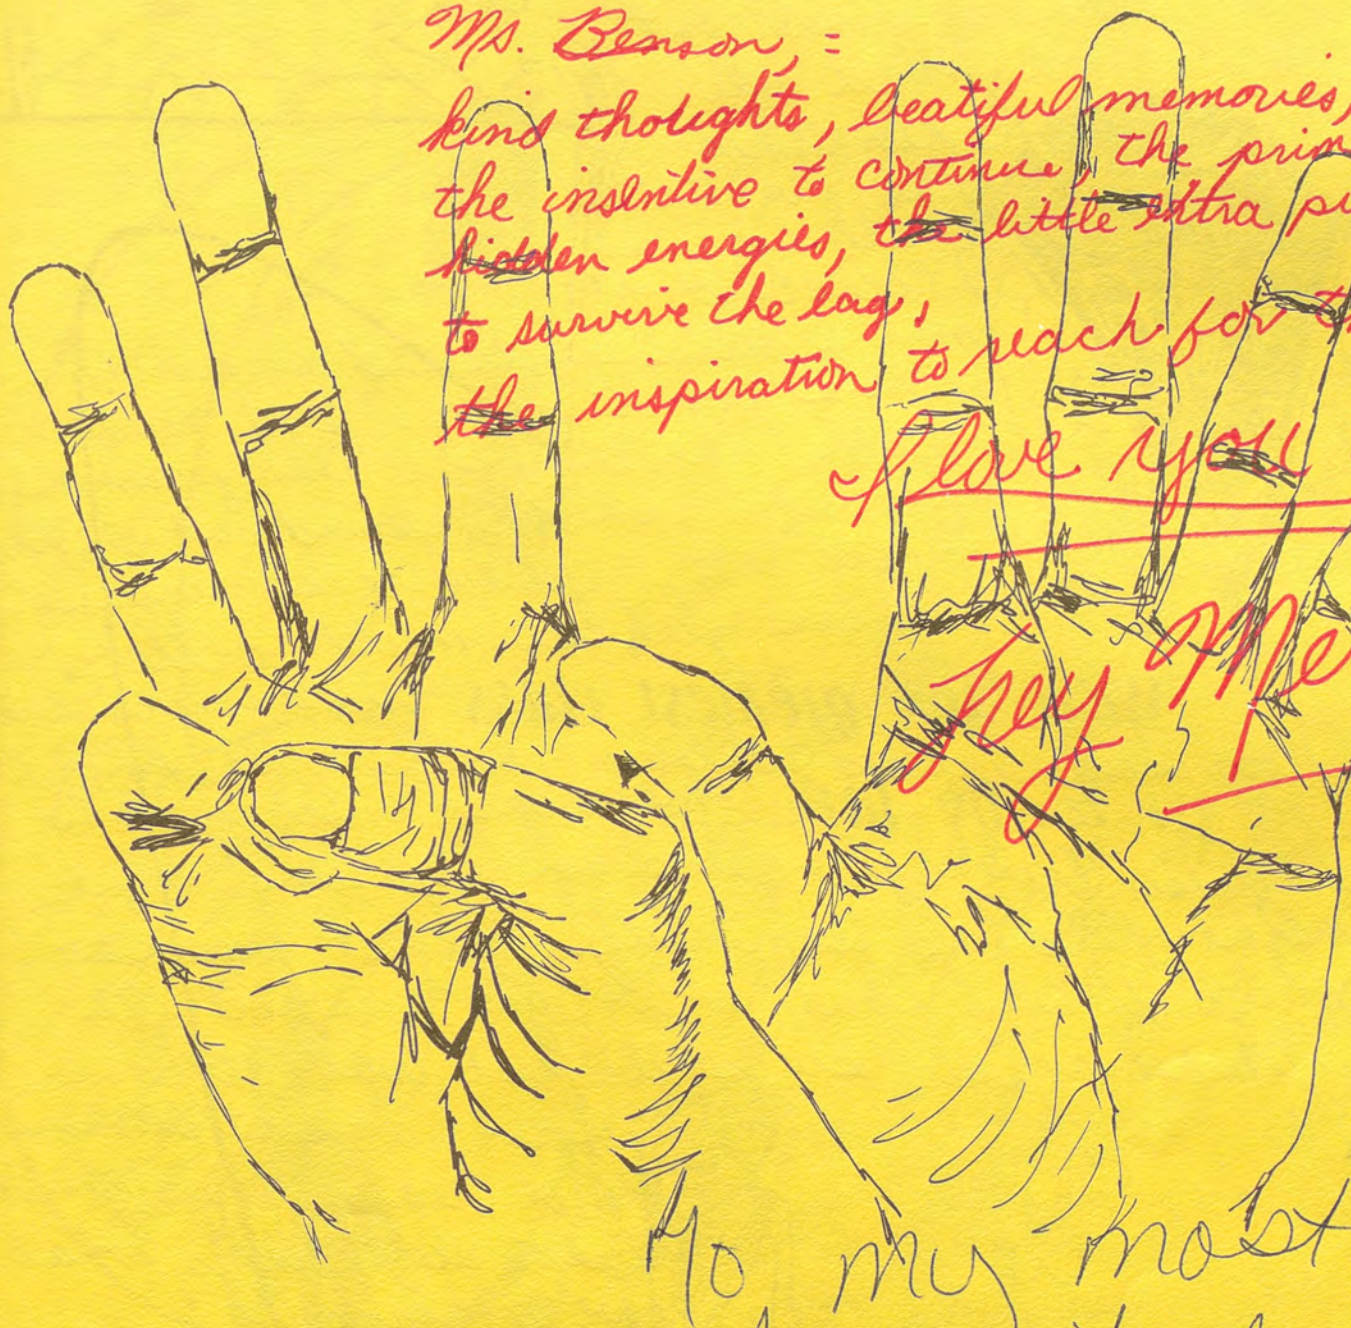 Ms. Benson, =
kind thoughts, beatiful memories,
the insentive to continue, the prim
hidden energies, the little extra pu
to survive the lag,
the inspiration to reach for th
I love you
hey Me
To my most